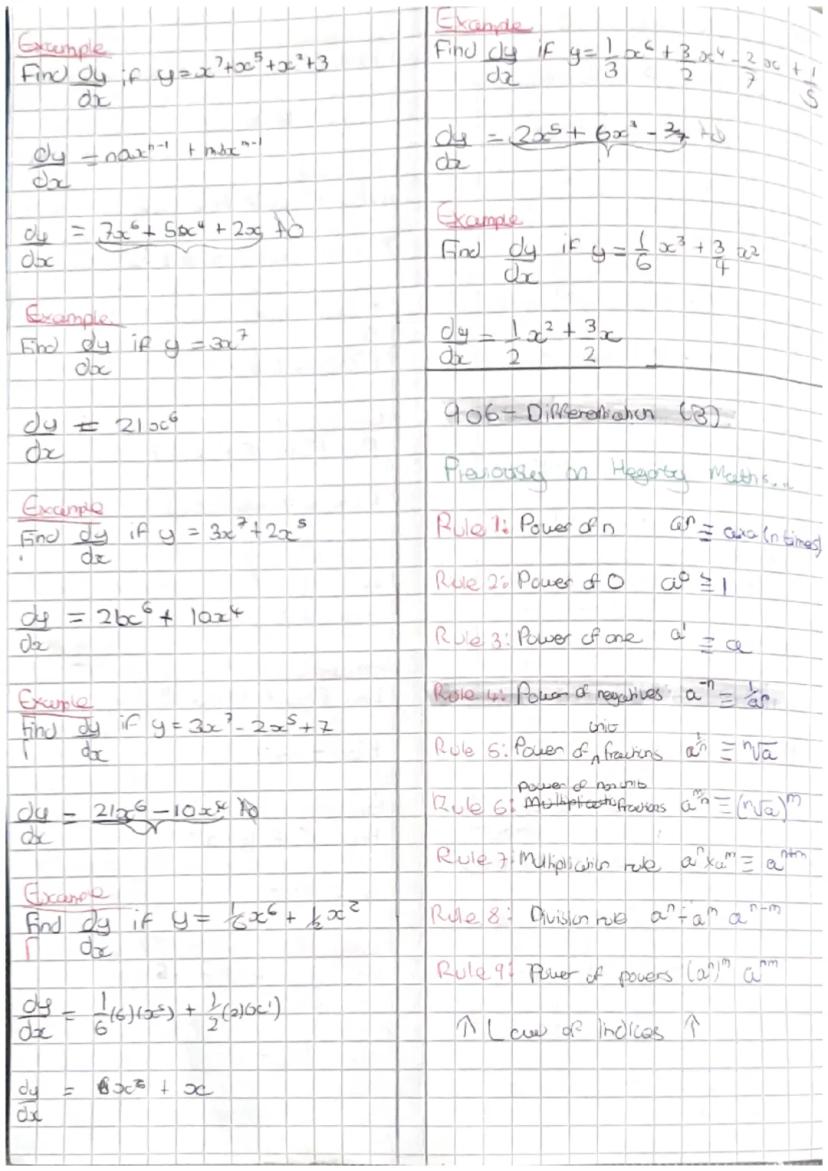 Example
Find dy/dx if y = x⁷+x⁵+x²+3
dy/dx = naxⁿ⁻¹ + mbxᵐ⁻¹
dy/dx = 7x⁶ + 5x⁴ + 2x + 0
Example
Find dy/dx if y = 3x⁷
dy/dx = 21x⁶
Example
Find dy/dx if y = 3x⁷+2x⁵
dy/dx = 21x⁶ + 10x⁴
Example
Find dy/dx if y = 3x⁷ - 2x⁵ + 7
dy/dx = 21x⁶ - 10x⁴ + 0
Example
Find dy/dx if y = 1/6x⁶ + 1/2x²
dy/dx = 1/6(6)(x⁵) + 1/2(2)(x¹)
dy/dx = x⁵ + x
Example
Find dy/dx if y = 1/3 x⁶ + 3/2 x⁴ - 2/7 x + 1/5
dy/dx = 2x⁵ + 6x³ - 2/7 + 0
Example
Find dy/dx if y = 1/6 x³ + 3/4 x²
dy/dx = 1/2 x² + 3/2 x
906 - Differentiation (3)
Previously on Hegarty Maths...
Rule 1: Power of n aⁿ ≡ axa (n times)
Rule 2: Power of 0 a⁰ ≡ 1
Rule 3: Power of one a¹ ≡ a
Rule 4: Power of negatives a⁻ⁿ ≡ 1/aⁿ
Rule 5: Power of unit fractions a^(1/n) ≡ ⁿ√a
Rule 6: power of non unit fractions a^(m/n) ≡ (ⁿ√a)ᵐ
Rule 7: Multiplication rule aⁿ x aᵐ ≡ aⁿ⁺ᵐ
Rule 8: Division rule aⁿ ÷ aᵐ aⁿ⁻ᵐ
Rule 9: Power of powers (aⁿ)ᵐ aⁿᵐ
↑ Law of indices ↑